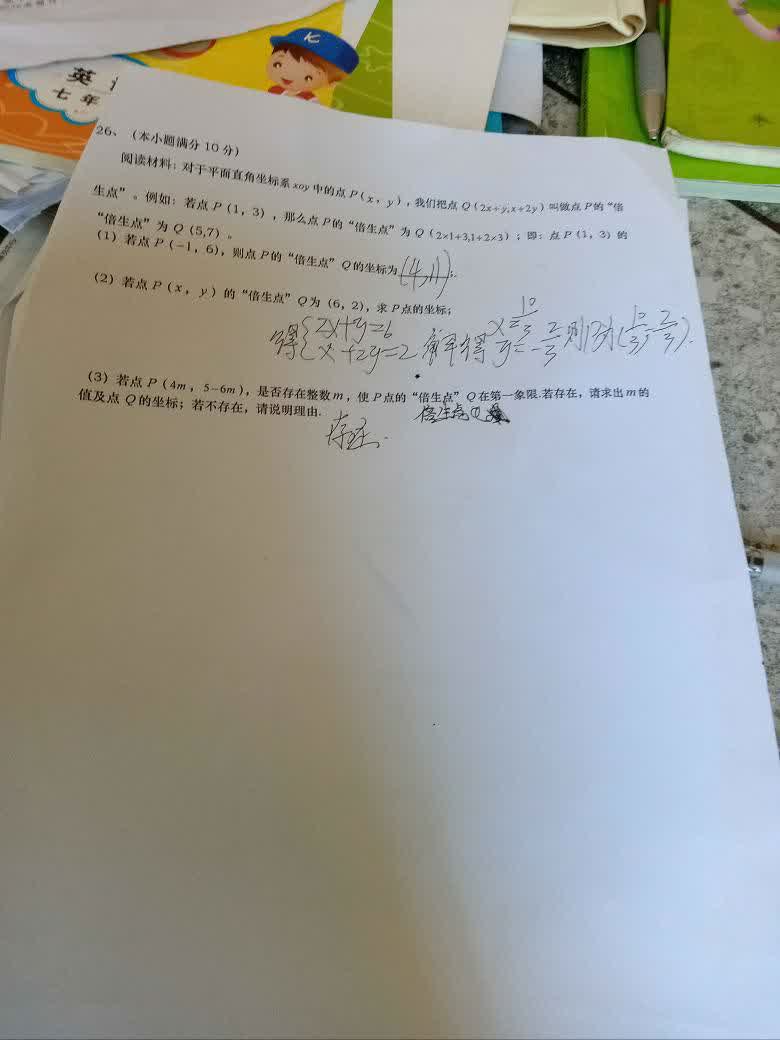 英
七年
K
26、（本小题满分 10 分）
阅读材料：对于平面直角坐标系 xoy 中的点 P（x，y），我们把点 Q（2x+y,x+2y）叫做点 P 的“倍
生点”。例如：若点 P（1，3），那么点 P 的“倍生点”为 Q（2×1+3,1+2×3）；即：点 P（1，3）的
“倍生点”为 Q（5,7）。
（1）若点 P（−1，6），则点 P 的“倍生点”Q 的坐标为(4,11)；
（2）若点 P（x，y）的“倍生点”Q 为（6，2），求 P 点的坐标；
得{2x+y=6 x+2y=2 解得 x=10/3 y=-2/3 则P为(10/3,-2/3).
（3）若点 P（4m，5−6m），是否存在整数 m，使 P 点的“倍生点”Q 在第一象限.若存在，请求出 m 的
值及点 Q 的坐标；若不存在，请说明理由.
倍生点Q
存在.